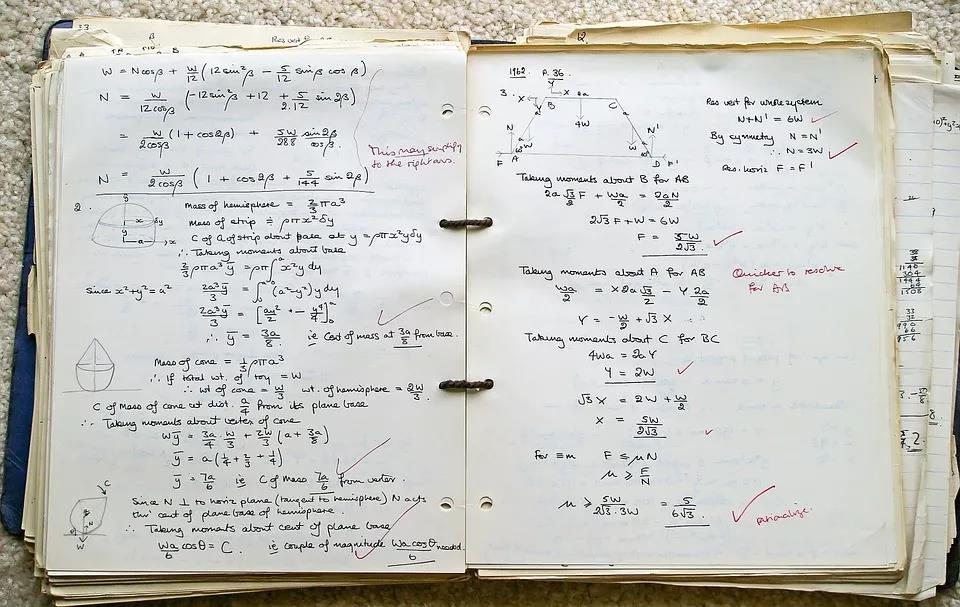 33
Res vert
W = Ncosβ + W/12 (12 sin²β − 5/12 sinβ cosβ)
N = W/12cosβ (−12 sin²β + 12 + 5/2.12 sin 2β)
= W/2cosβ (1 + cos2β) + 5W/288 sin2β/cosβ.
This may simplify
to the right ans.
N = W/2cosβ (1 + cos2β + 5/144 sin 2β)
2.
Mass of hemisphere = 2/3 πa³
Mass of strip ≑ ρπx²δy
C of G of strip about base at y = ρπx²yδy
∴ Taking moments about base
2/3 ρπa³ȳ = ρπ∫₀ᵃ x²y dy
Since x²+y² = a² 2a³ȳ/3 = ∫₀ᵃ (a²-y²) y dy
2a³ȳ/3 = [ay²/2 + − y⁴/4]₀ᵃ
∴ ȳ = 3a/8 ie Cent of mass at 3a/8 from base.
Mass of cone = 1/3 ρπa³
∴ If total wt. of toy = W
∴ wt of cone = W/3 wt. of hemisphere = 2W/3.
C of Mass of cone at dist. a/4 from its plane base
∴ Taking moments about vertex of cone
Wȳ = 3a/4 . W/3 + 2W/3 (a + 3a/8)
ȳ = a (1/4 + 2/3 + 1/4)
ȳ = 7a/6 ie C of Mass 7a/6 from vertex.
Since N ⊥ to horiz plane (tangent to hemisphere) N acts
thro' cent of plane base of hemisphere.
∴ Taking moments about cent of plane base
Wa/6 cosθ = C. ie couple of magnitude Wa cosθ/6 needed.
12.
1962. P. 36.
3.
Y
X X 2a
B C
4W
N N'
W W
F A D F'
Res vert for whole system
N+N' = 6W
By symmetry N = N'
∴ N = 3W
Res. horiz F = F'
Taking moments about B for AB
2a√3/2 F + Wa/2 = 2aN/2
2√3 F + W = 6W
F = 5W/2√3
Taking moments about A for AB
Quicker to resolve
for AB
Wa/2 = X 2a √3/2 − Y 2a/2
Y = −W/2 + √3 X
Taking moments about C for BC
4Wa = 2a Y
Y = 2W
√3 X = 2W + W/2
X = 5W/2√3
For ≡m F ≤ μN
μ ≥ F/N
μ ≥ 5W/2√3 . 3W = 5/6√3
rationalize.